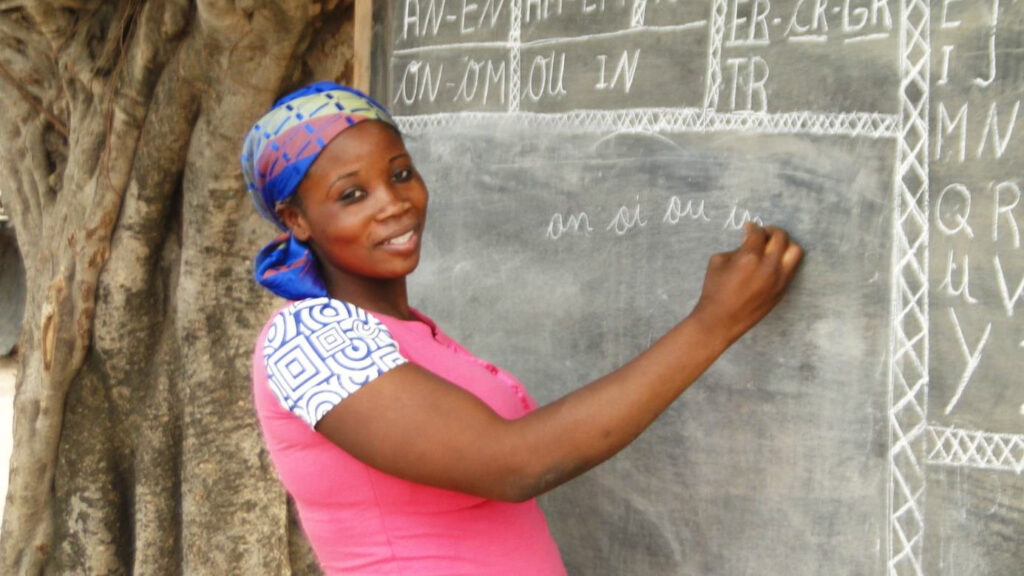 AN-EN
FR-CR-GR
ON-OM
OU IN
TR
on oi ou in
E
I J
M N
Q R
U V
Y